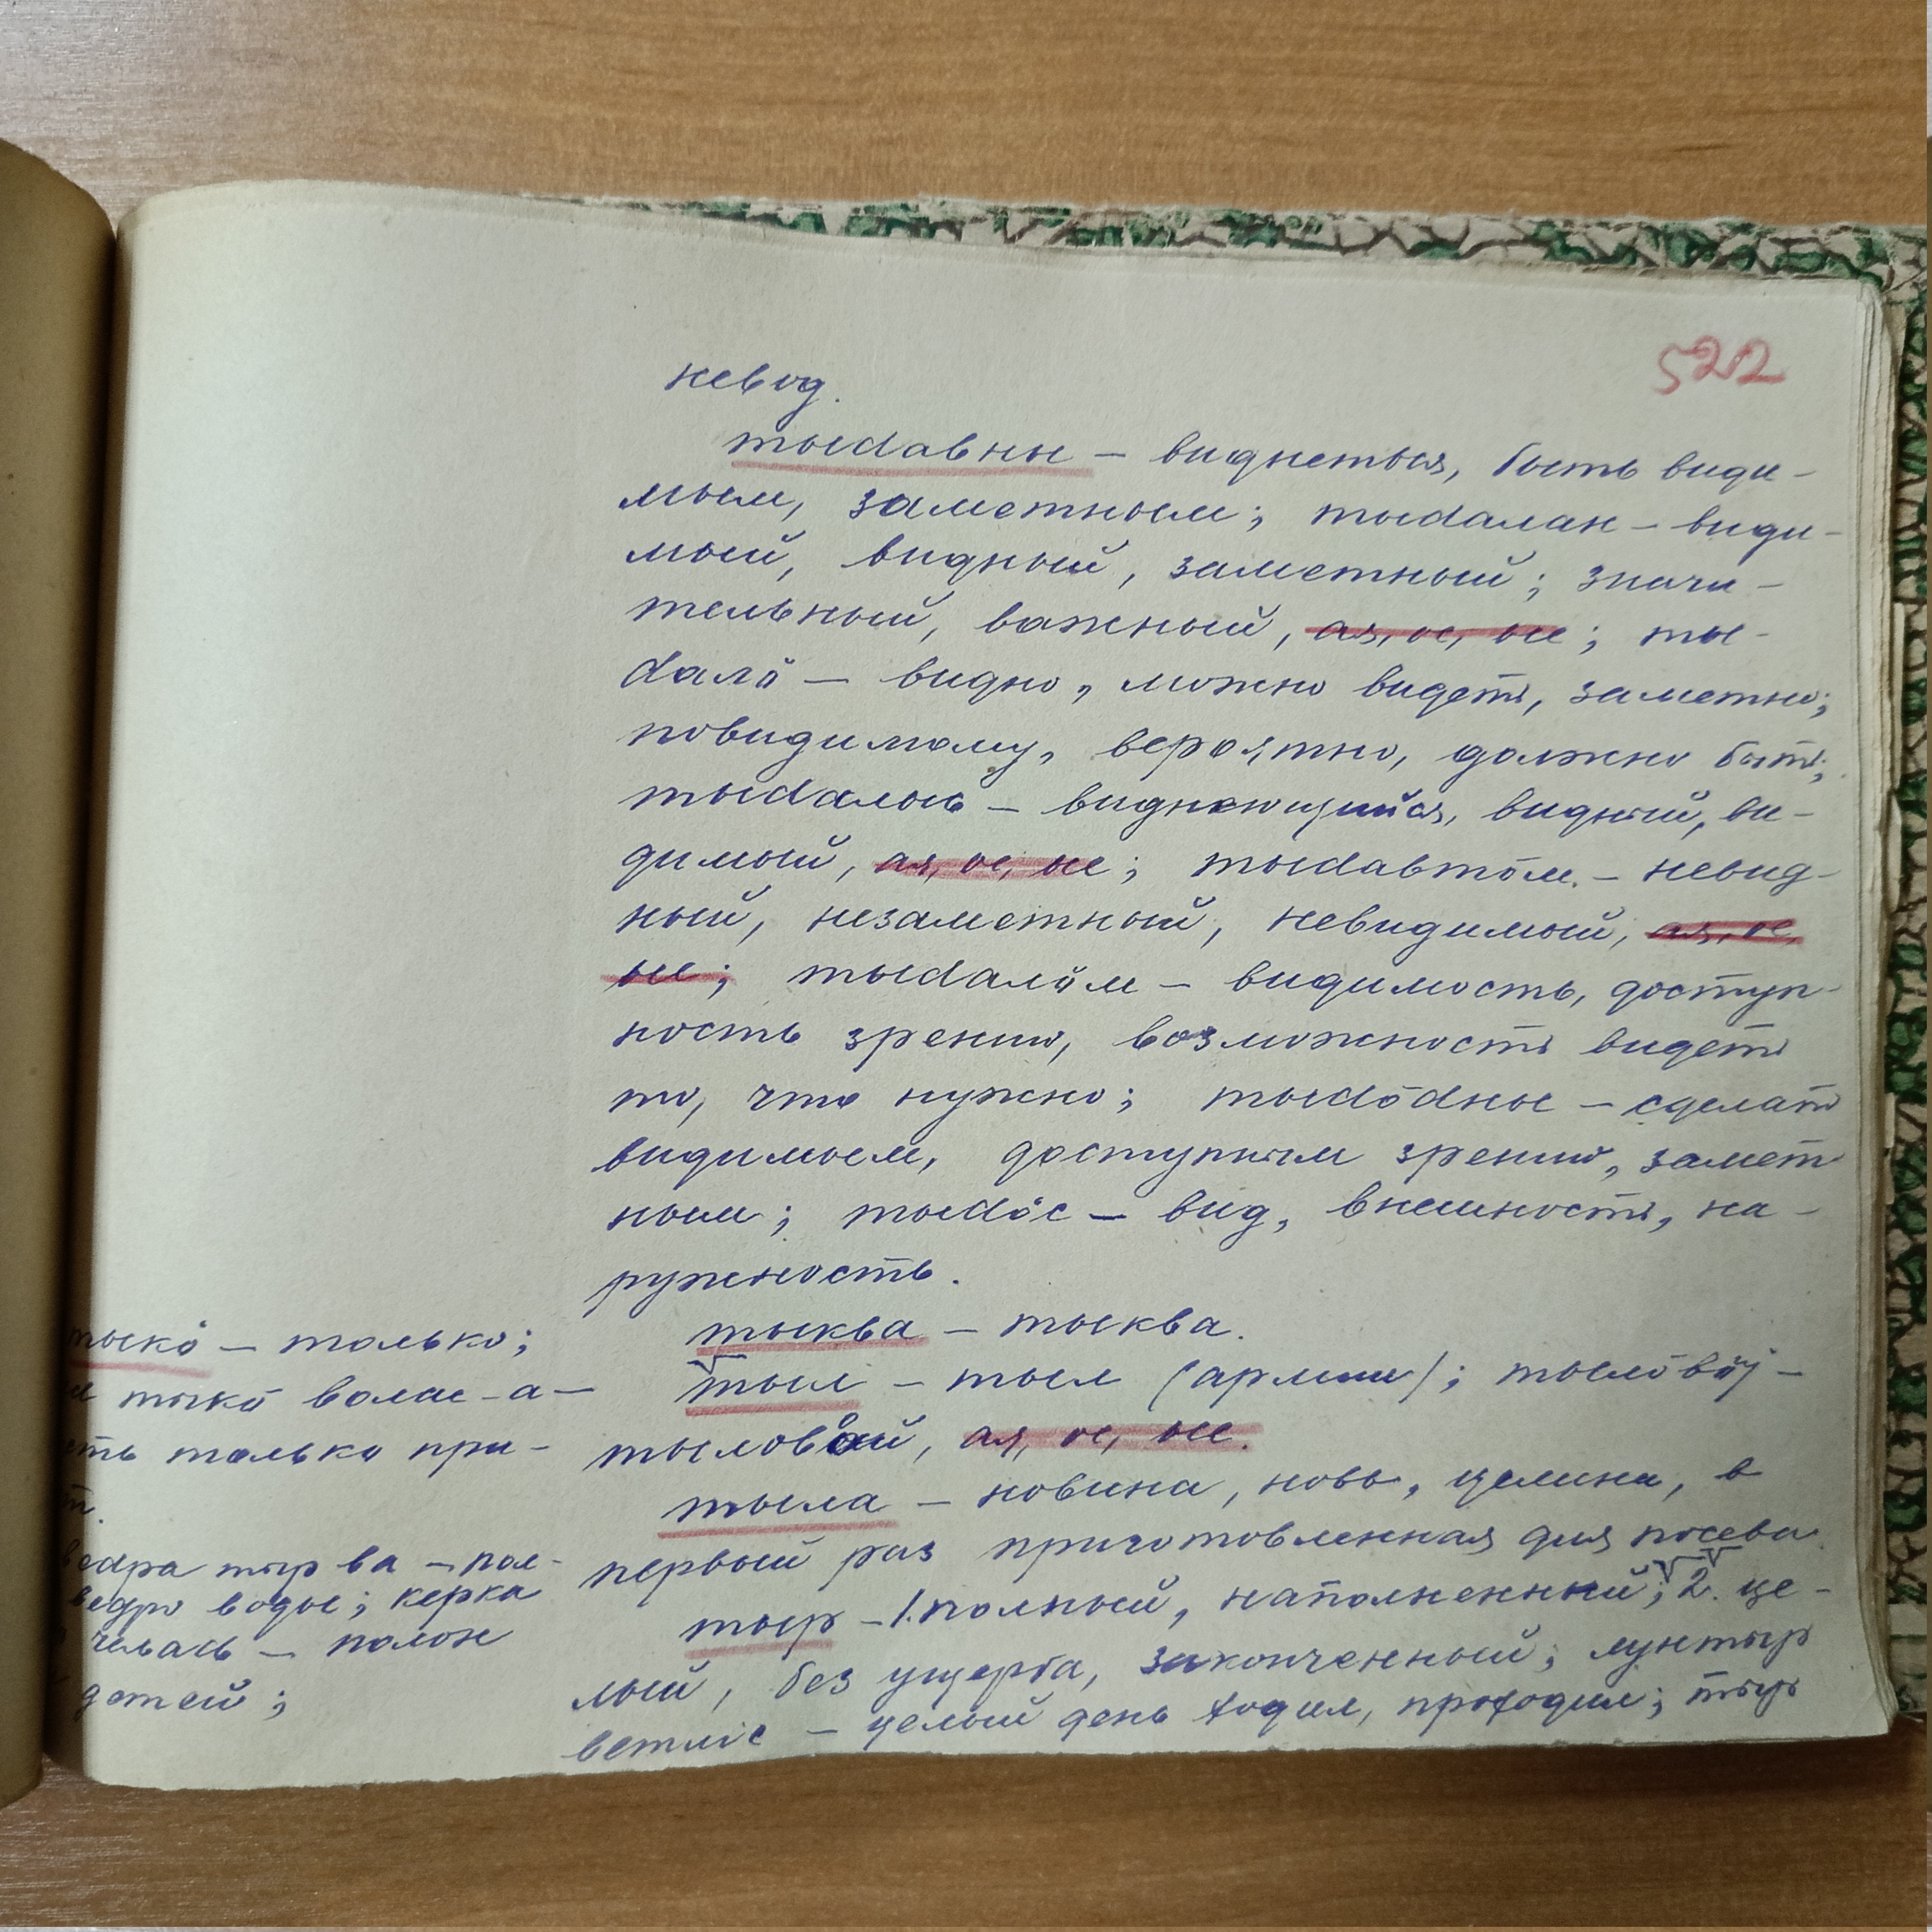 522
невод.
тыdавны – виднеться, быть види-
мым, заметным; тыdалан – види-
мый, видный, заметный; значи-
тельный, важный, ая, ое, ые; ты-
dалӧ – видно, можно видеть, заметно;
повидимому, вероятно, должно быть;
тыdалысь – виднеющийся, видный, ви-
димый, ая, ое, ые; тыdавтӧм – невид-
ный, незаметный, невидимый, ая, ое,
ые; тыdалӧм – видимость, доступ-
ность зрению, возможность видеть
то, что нужно; тыdӧdны – сделать
видимым, доступным зрению, замет
ным; тыdӧс – вид, внешность, на-
ружность.
тыква – тыква.
тыл – тыл (армии); тылӧвӧj –
тыловой, ая, ое, ые.
тыла – новина, новь, целина, в
первый раз приготовленная для посева.
тыр – 1. полный, наполненный; 2. це-
лый, без ущерба, законченный; лунтыр
ветлiс – целый день ходил, проходил; тыр
тыкӧ – только;
тыкӧ волас – а –
только при-
ведра тыр ва – пол-
ведро воды; керка
чельаdь – полон
детей;